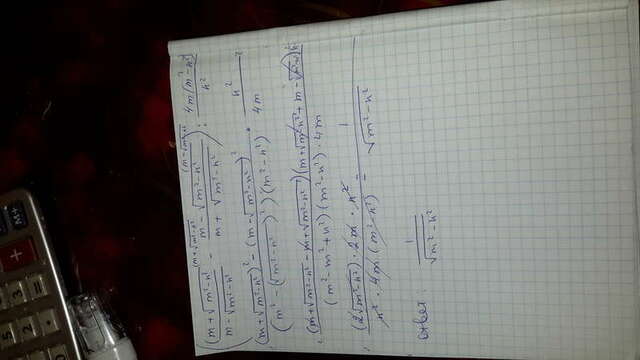 ((m+√m²-n²)/(m-√m²-n²) - (m-√m²-n²)/(m+√m²-n²)) : 4m√m²-n²/n²
((m+√m²-n²)² - (m-√m²-n²)²)/(m² - (√m²-n²)²)(m²-n²) · n²/4m
(m+√m²-n² - m+√m²-n²)(m+√m²-n² + m-√m²-n²)n²/(m²-m²+n²)(m²-n²)·4m
(2√m²-n²)·2m·n²/n²·4m(m²-n²) = 1/√m²-n²
Ответ: 1/√m²-n²
M+
+